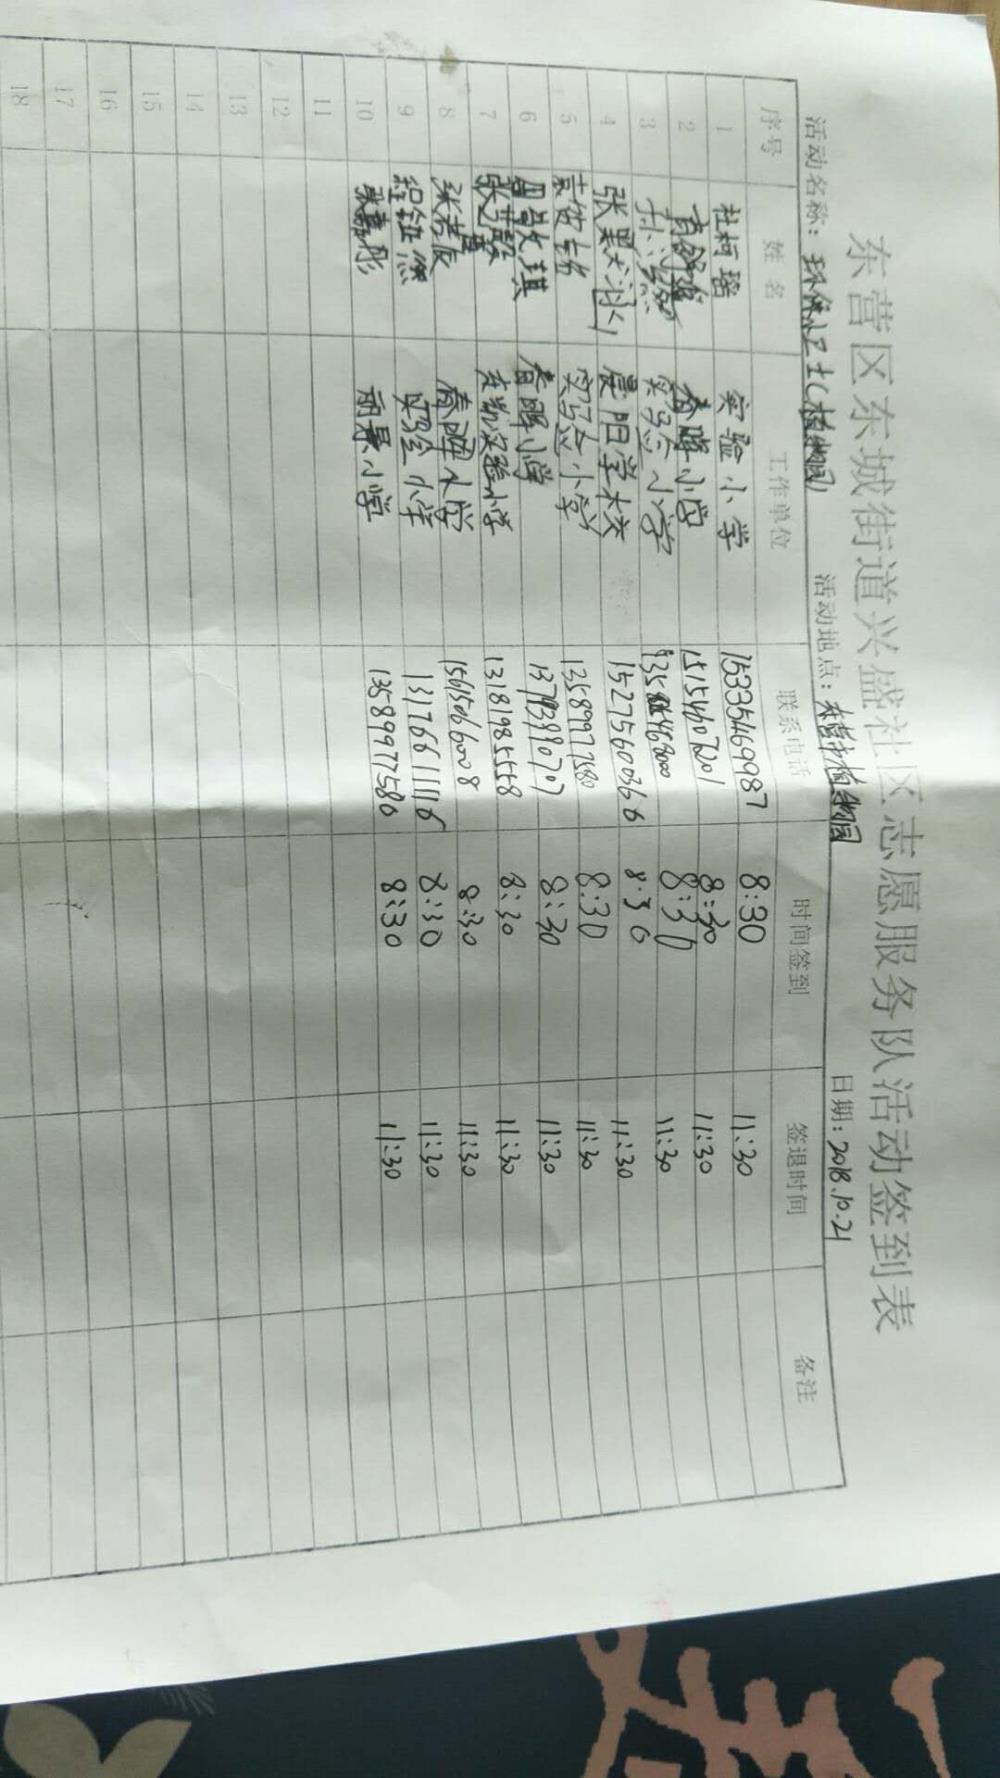 东营区东城街道兴盛社区志愿服务队活动签到表
活动名称：环保小卫士(植物园) 活动地点：东营植物园 日期：2018.10.21
序号 姓名 工作单位 联系电话 时间签到 签退时间 备注
1 杜柯瑶 实验小学 15335469987 8:30 11:30
2 春晖小学 15154607201 8:30 11:30
3 实验小学 8:30 11:30
4 晨阳学校 15275600366 8:30 11:30
5 实验小学 13589977580 8:30 11:30
6 周敬琪 春晖小学 8:30 11:30
7 张艺馨 东凯实验小学 13181985558 8:30 11:30
8 张若辰 春晖小学 15615066008 8:30 11:30
9 程钰然 实验小学 13176611116 8:30 11:30
10 张嘉彤 丽景小学 13589977580 8:30 11:30
11
12
13
14
15
16
17
18